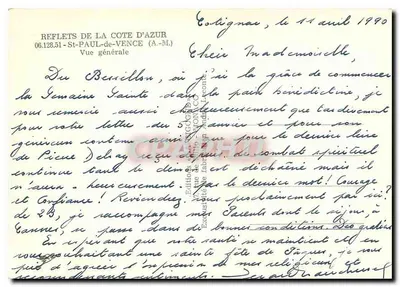 REFLETS DE LA COTE D'AZUR
06.128.51 - St-PAUL-de-VENCE (A.-M.)
Vue générale
Cotignac, le 11 avril 1990
Chère Mademoiselle,
Du Bessillon, où j'ai la grâce de commencer
la Semaine Sainte dans la paix bénédictine, je
vous remercie aussi chaleureusement que tardivement
pour votre lettre du 5 janvier et pour son
généreux contenu ainsi que pour le dernier livre
de Pierre Debray reçu depuis. Le combat spirituel
continue dans le
n'aura - heureusement - pas le dernier mot ! Courage
et Confiance ! Reviendrez-vous prochainement par ici ?
le 23, je raccompagne mes Parents dont le séjour, à
Cannes, se passe dans de bonnes conditions. Deo gratias
En espérant que votre santé se maintient et en
vous souhaitant une sainte fête de Pâques, je vous
prie d'agréer l'expression de mes religieux et
sentiments.